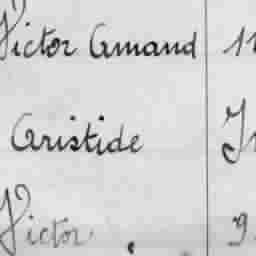 Victor Amand
Aristide
Victor